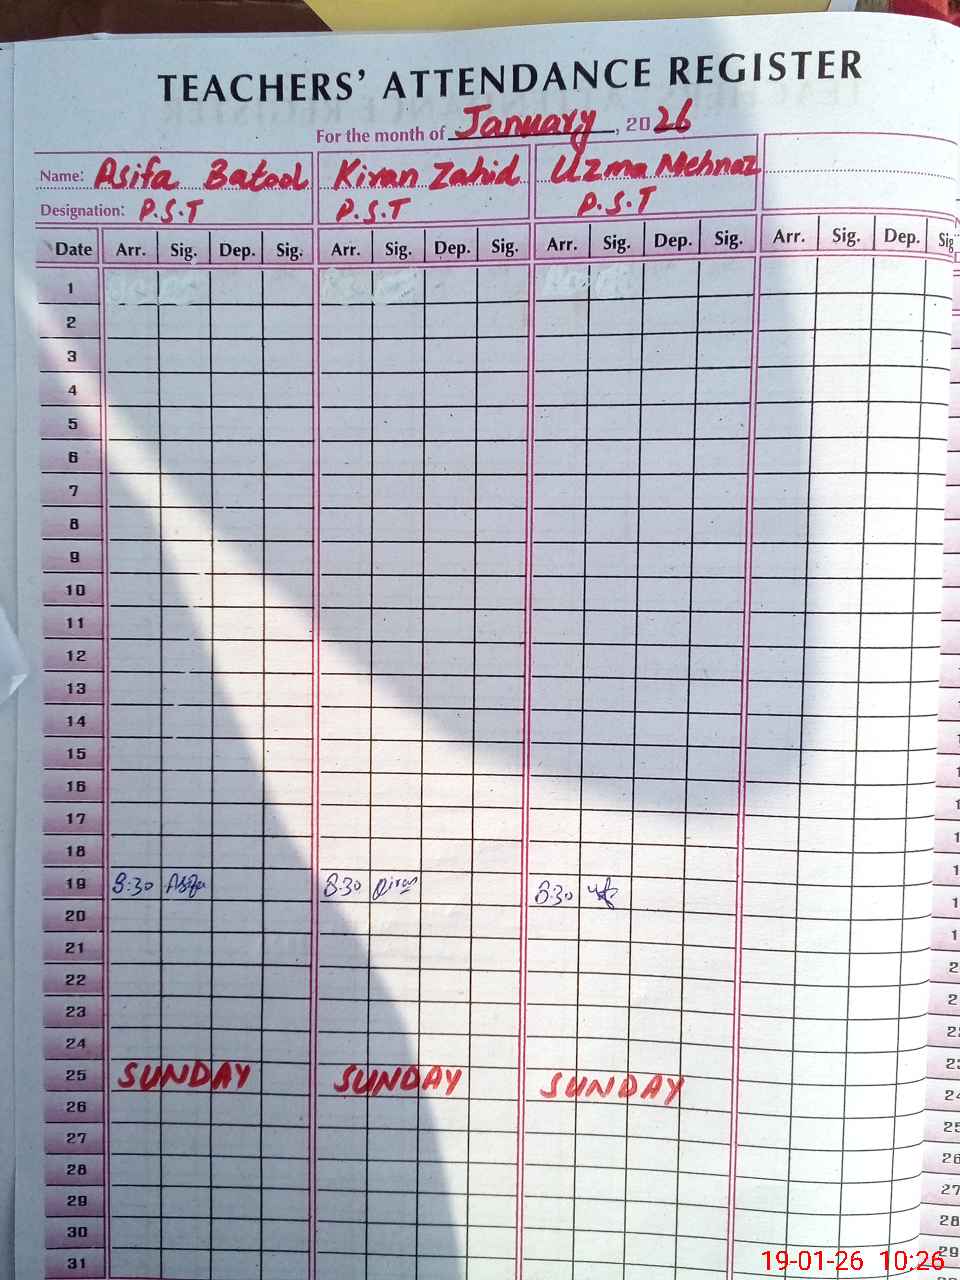 TEACHERS' ATTENDANCE REGISTER
For the month of January, 2026
Name: Asifa Batool Kiran Zahid Uzma Mehnaz
Designation: P.S.T P.S.T P.S.T
Date Arr. Sig. Dep. Sig. Arr. Sig. Dep. Sig. Arr. Sig. Dep. Sig. Arr. Sig. Dep. Sig
1
2
3
4
5
6
7
8
9
10
11
12
13
14
15
16
17
18
19 8:30 Asifa 8:30 Kiran 8:30
20
21
22
23
24
25 SUNDAY SUNDAY SUNDAY
26
27
28
29
30
31
19-01-26 10:26